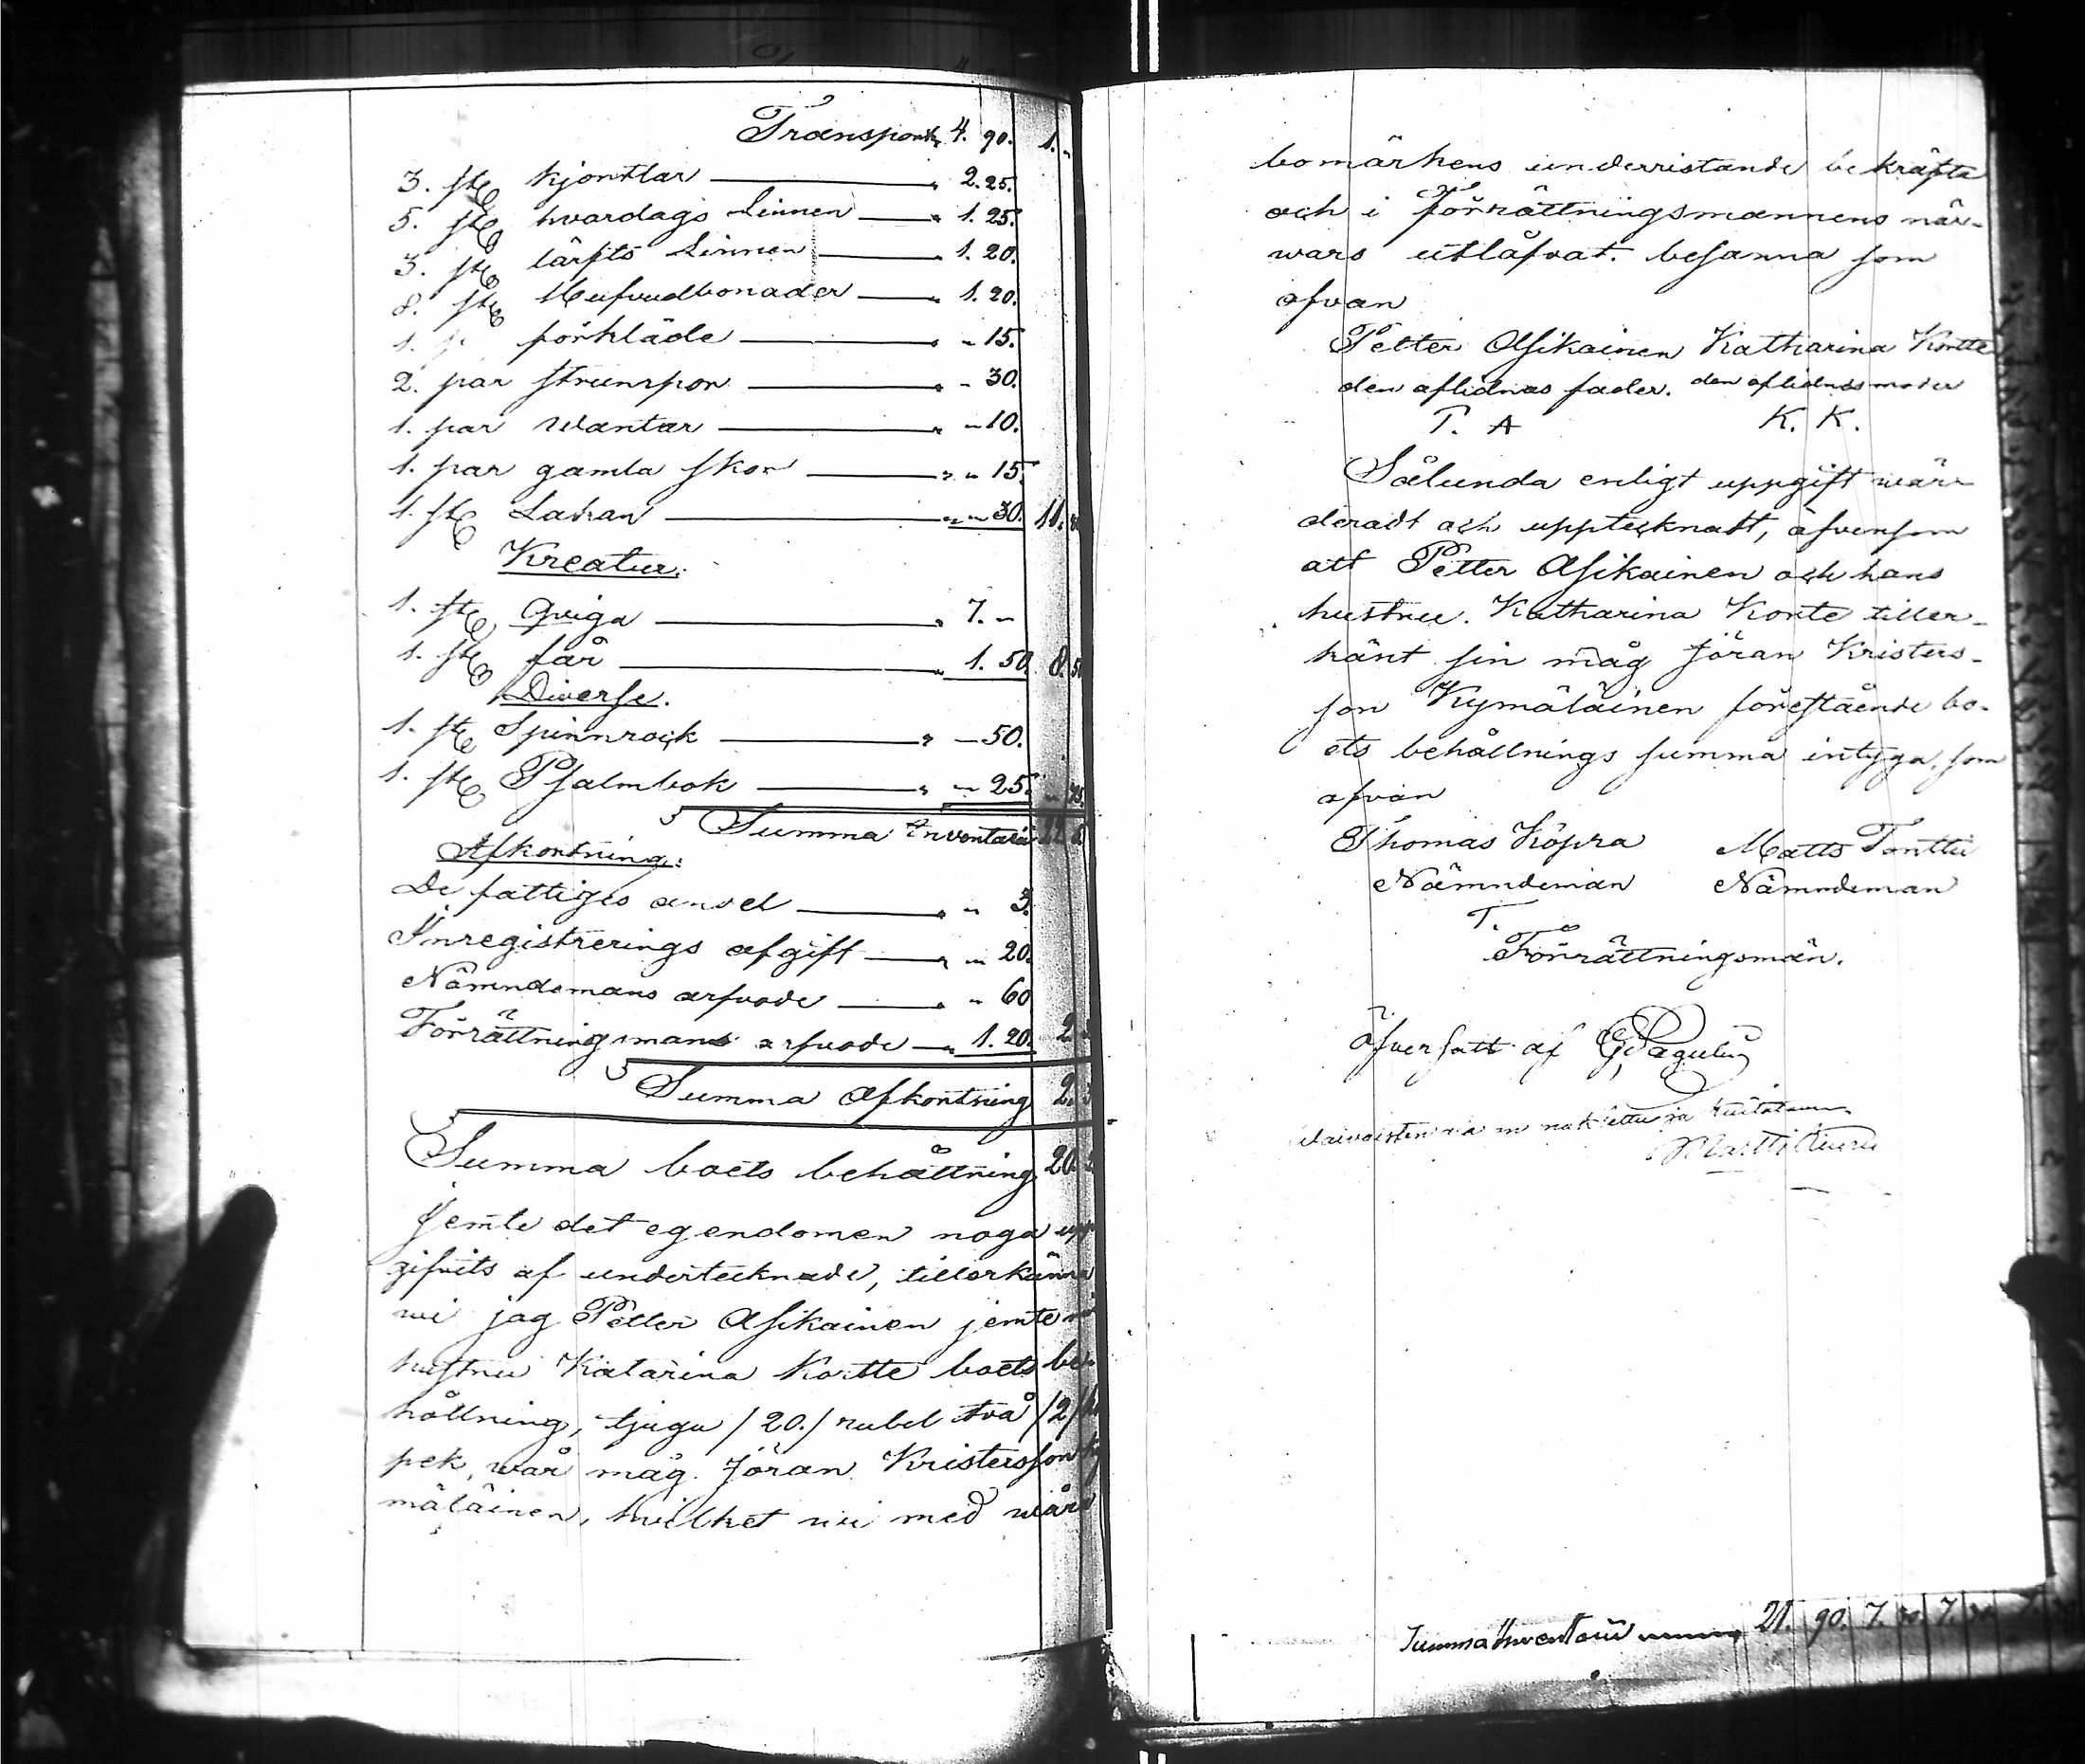 Transport 4. 90. 1. "
3. st kjortlar " 2. 25.
5. st hvardags Linnen " 1. 25.
3. st lärfts Linnen 1. 20.
8. st Hufvudbonader " 1. 20.
1. förkläde " - 15.
2. par strumpor " - 30.
1. par wantar " - 10.
1. par gamla skor " " 15.
1. st Lakan " " 30. 11.
Kreatur:
1. st Qviga " 7. "
1. st får " 1. 50. 8. 50
Diverse.
1. st Spinnrock " - 50.
1. st Psalmbok " " 25. " 75.
Summa Inventarie
Afkortning:
De fattiges andel " " 3.
Inregistrerings afgift " " 20.
Nämndemans arfvode " " 60
Förrättningsmans arfvode " 1. 20. 2
Summa Afkortning 2.
Summa boets behållning 20.
Jemte det egendomen noga upp
gifvits af undertecknade, tillerkänna
wi jag Petter Asikainen jemte
hustru Katarina Kortte boets be-
hållning, tjugu /20./ rubel två /2/
pek, wår måg Jöran Kristersson
mäläinen, hvilket wi med wåra
bomärkens underristande bekräfta
och i förrättningsmannens när-
waro utlåfvat. besanna som
ofvan
Petter Asikainen Katharina Kortte
den aflidnas fader. den aflidnas moder
P. A K. K.
Sålunda enligt uppgift wär-
deradt och upptecknatt, äfvensom
att Petter Asikainen och hans
hustru. Katharina Korte tiller-
känt sin måg Jöran Kristers-
son Kymäläinen förestående bo-
ets behållnings summa intyga, som
ofvan
Thomas Köpra Matts Tonttu
Nämndeman Nämndeman
T.
Förrättningsmän.
Öfversatt af
Martti Kuru
Summa Inventarii 21. 90. 7. 7.